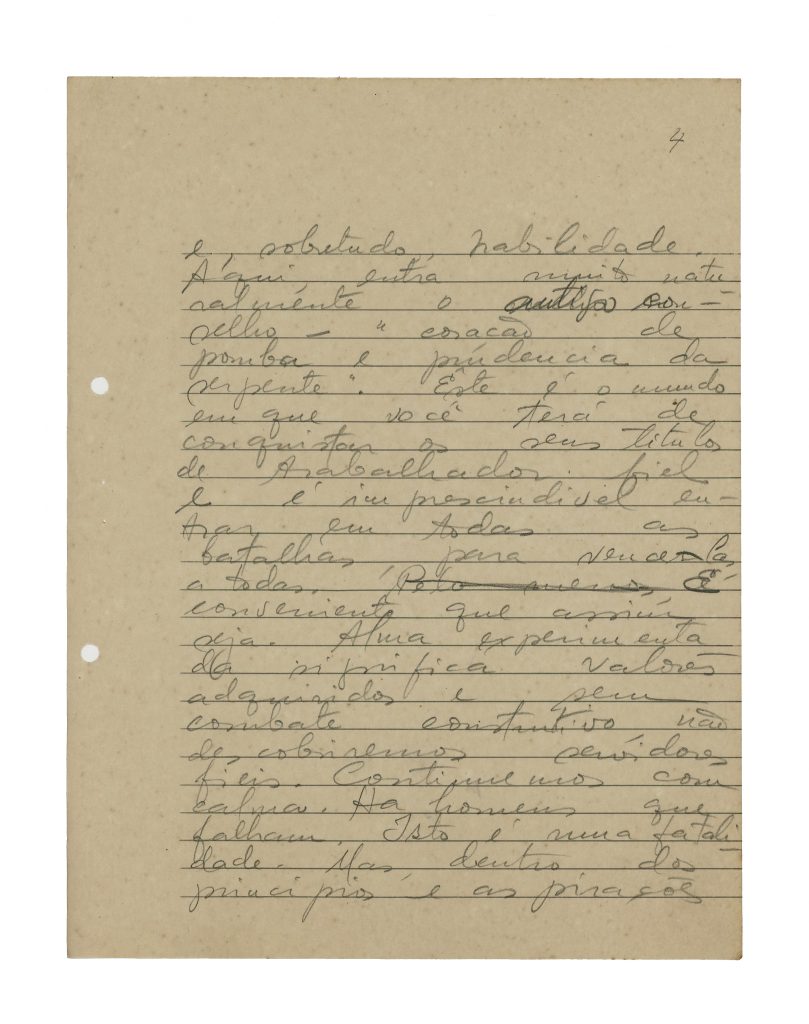 4
e, sobretudo, habilidade.
Aqui entra muito natu
ralmente o antigo con-
selho – "coração de
pomba e prudencia da
serpente". Êste é o mundo
em que você terá de
conquistar os seus titulos
de trabalhador fiel
e é imprescindivel en-
trar em todas as
batalhas, para vence-las
a todas. Pelo menos, É
conveniente que assim
seja. Alma experimenta
da significa valores
adquiridos e sem
combate construtivo não
descobriremos servidores
fieis. Continuemos com
calma. Ha homens que
falham. Isto é numa fatali-
dade. Mas, dentro dos
principios e aspirações